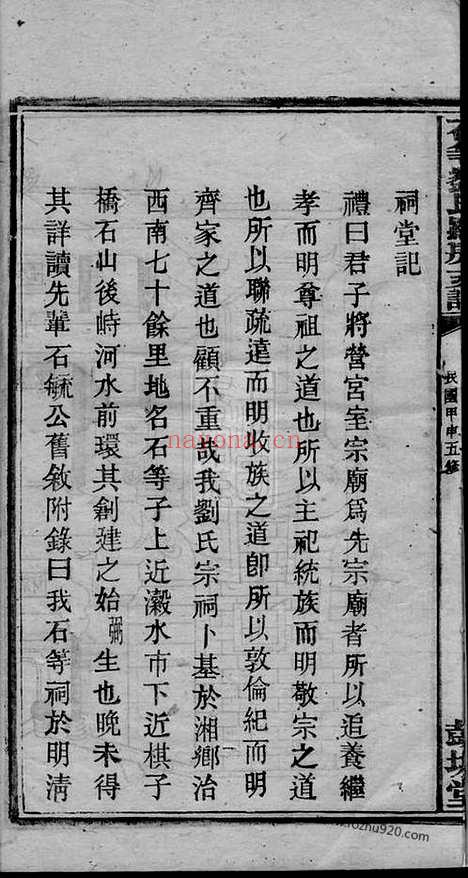 祠堂記
禮曰君子將營宮室宗廟爲先宗廟者所以追養繼
孝而明尊祖之道也所以主祀統族而明敬宗之道
也所以聯疏遠而明收族之道卽所以敦倫紀而明
齊家之道也顧不重哉我劉氏宗祠卜基於湘鄉治
西南七十餘里地名石等子上近瀫水市下近棋子
橋石山後峙河水前環其創建之始弼生也晚未得
其詳讀先輩石毓公舊敘附錄曰我石等祠於明清
民國甲申五修
堂
naxona.cn